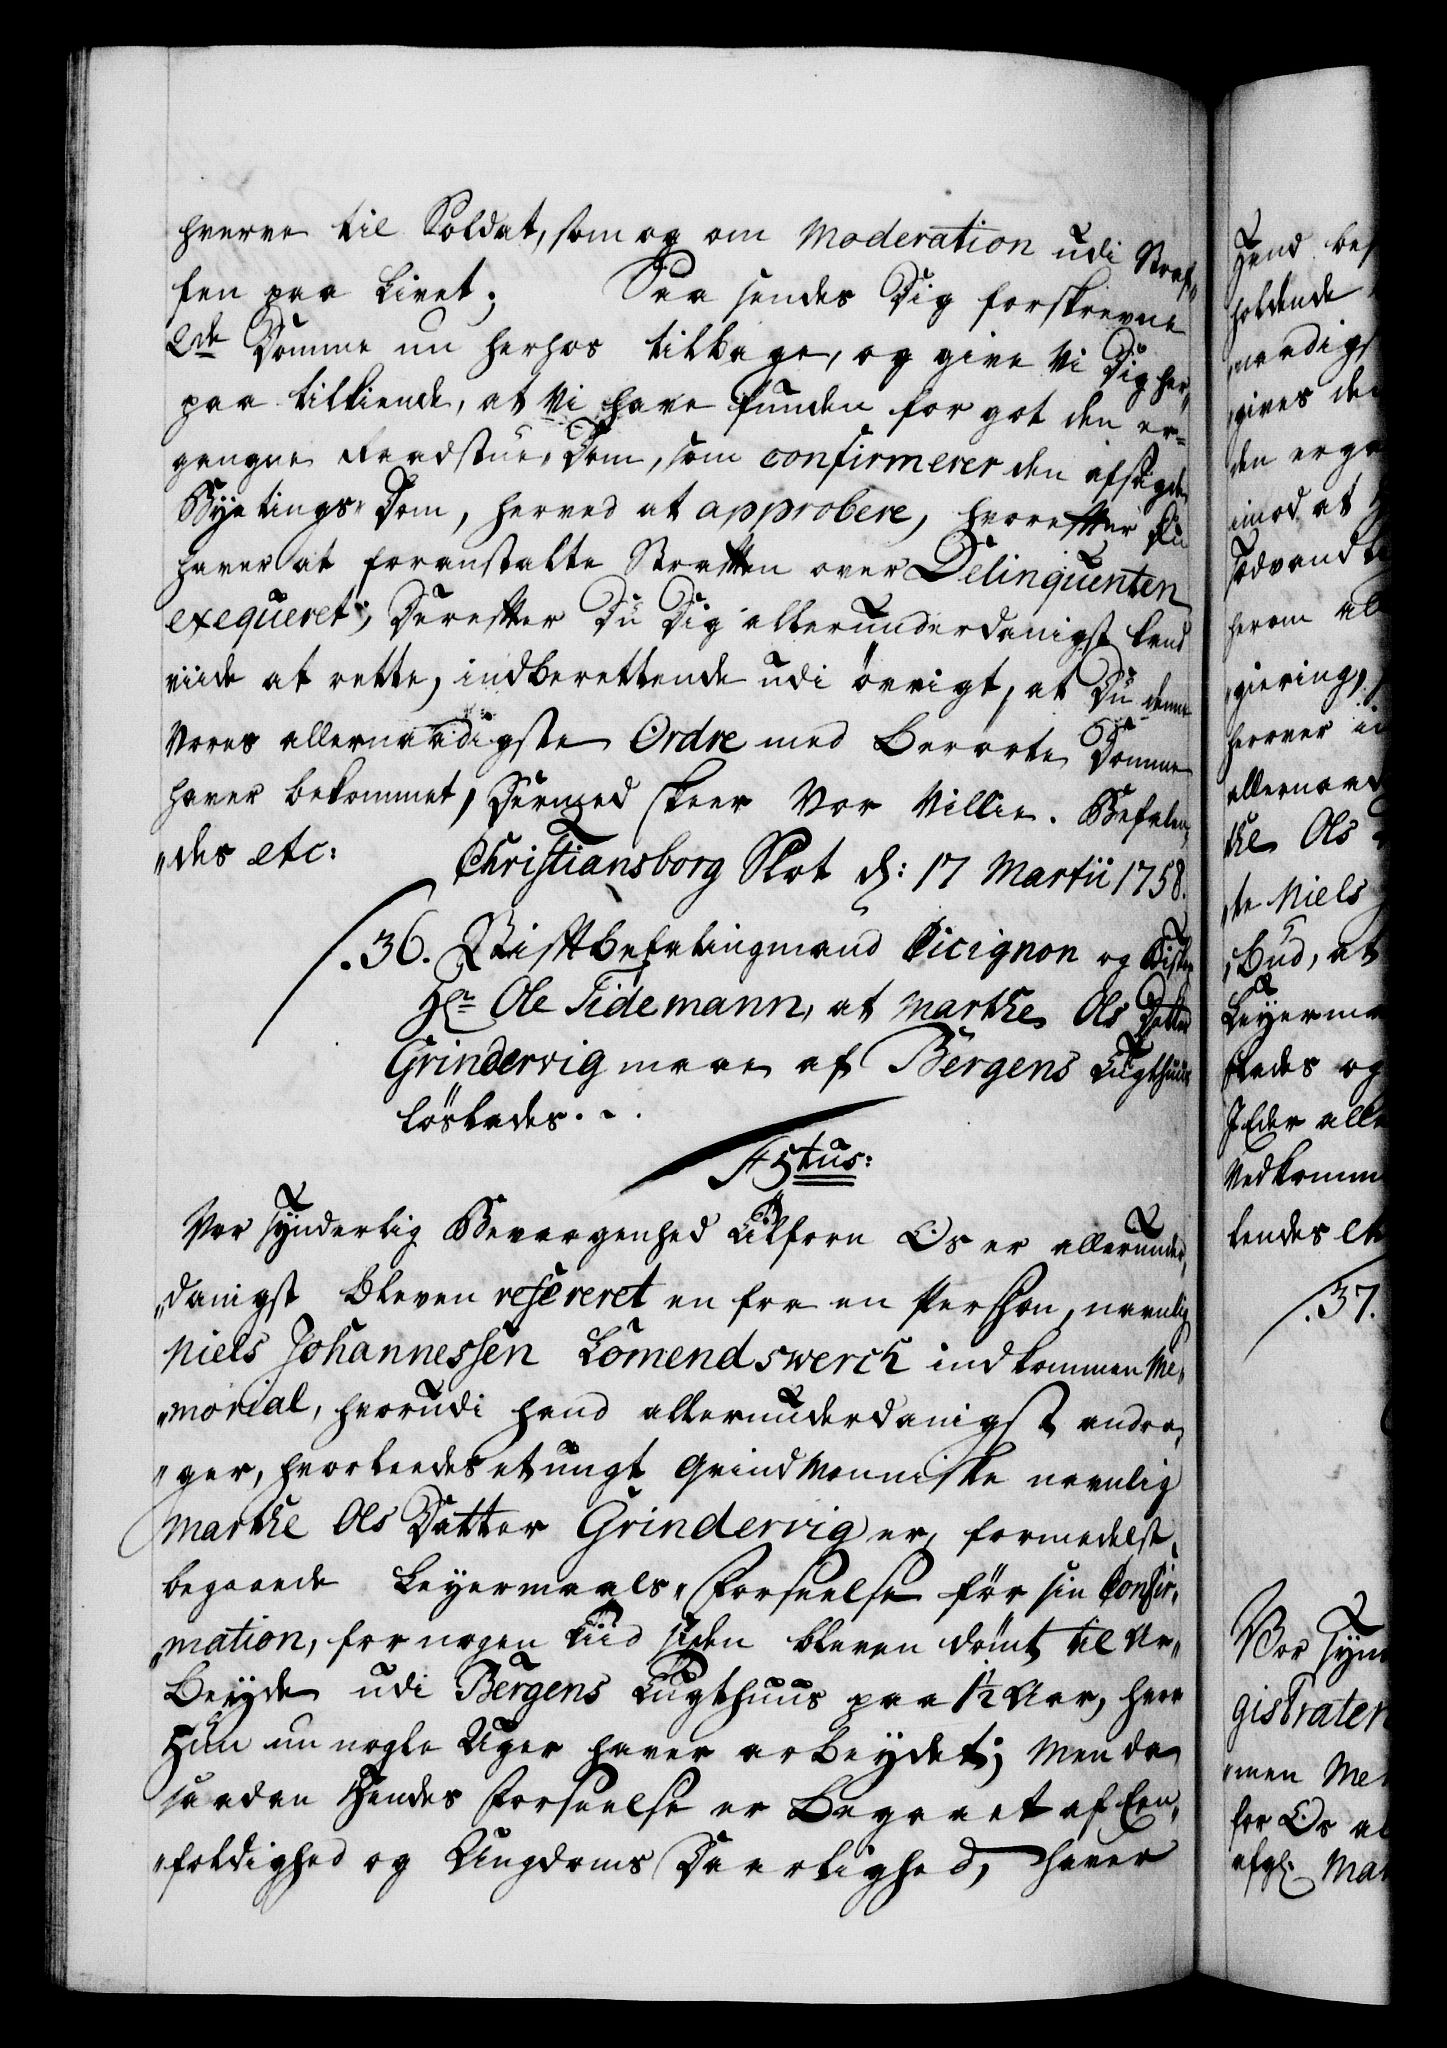 hverve til Soldat, som og om Moderation udi Straf„
fen paa Livet; Saa sendes Dig forskrevne
2de Domme nu herhos tilbage, og give Vi Dig her„
paa tilkiende, at Vi have funden for got den er=
gangne Raadstue„Dom, som confirmerer den afsagde
Byetings„Dom, herved at approbere, hvorefter Du
haver at foranstalte Straffen over Delinquenten
exequeret; Derefter Du Dig allerunderdanigst kand
viide at rette, indberettende udi övrigt, at Du denne
Vores allernaadigste Ordre med berörte Domme
haver bekommet, Dermed skeer Vor Villie. Befalen„
„des etc: Christiansborg Slot d: 17 Martii 1758.
36. Stiftbefalingmand Cicignon og Biskop
Hr Ole Tidemann, at Marthe Ols Datter
Grindervig maae af Bergens Tugthuus
löslades.
F 5tus:
Vor synderlig Bevaagenhed Tilforn Os er allerunder„
„danigst bleven refereret en fra en Pershon, navnlig
Niels Johannessen Lomendswerch indkommen Me„
„morial, hvorudi hand allerunderdanigst andra„
„ger, hvorleedes et ungt Qvindmenniske navnlig
Marthe Ols Datter Grindervig er, formedelst
begaaede Leyermaals„Forseelse för sin Confir„
„mation, for nogen Tiid siden bleven dömt til Ar„
beyde udi Bergens Tugthuus paa 1½ Aar, hvor
Hun nu nogle Uger haver arbeydet; Men da
saadan Hendes Forseelse er begaaet af Een„
„foldighed og Ungdoms Daarlighed, haver
Hand
holdende
„naadigs
„gives de
den erga
imod at
herom al
„giering,
allernaad
the Ols
te Niels
„bud, at
Leyerma
stades og
I Eder alle
Vedkomm
lendes et
37.
Vor Syn
gistrater
men Me
for Os al
afg: Mar